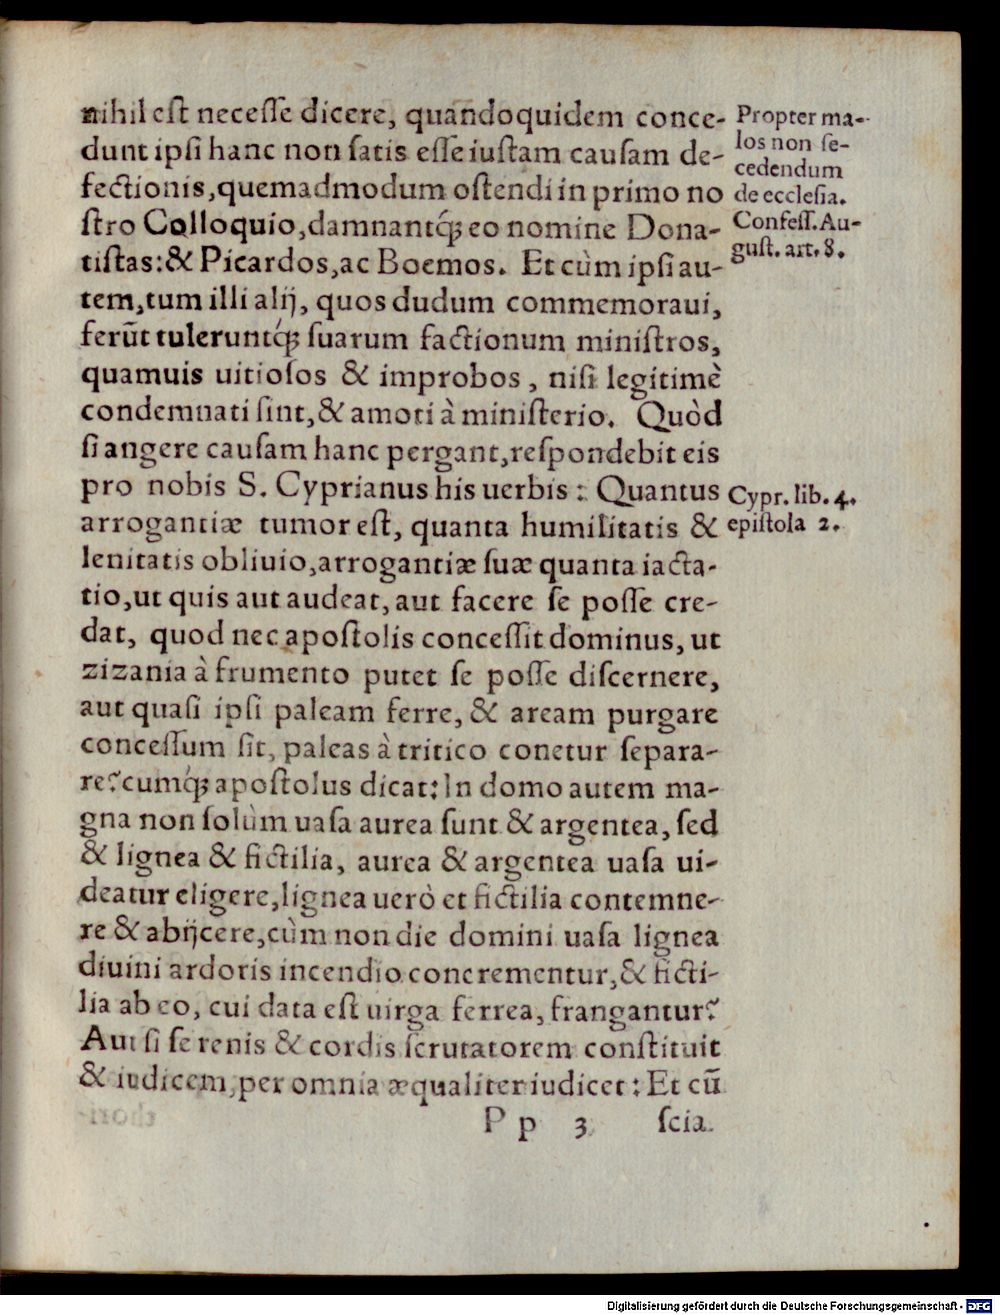 nihil eſt neceſſe dicere, quandoquidem conce-
dunt ipſi hanc non ſatis eſſe iuſtam cauſam de-
fectionis, quemadmodum oſtendi in primo no
ſtro Colloquio, damnantq́; eo nomine Dona-
tiſtas: & Picardos, ac Boemos. Et cùm ipſi au-
tem, tum illi alij, quos dudum commemoraui,
ferūt tuleruntq́; ſuarum factionum miniſtros,
quamuis uitioſos & improbos, niſi legitimè
condemnati ſint, & amoti à miniſterio. Quòd
ſi angere cauſam hanc pergant, reſpondebit eis
pro nobis S. Cyprianus his uerbis: Quantus
arrogantiæ tumor eſt, quanta humilitatis &
lenitatis obliuio, arrogantiæ ſuæ quanta iacta-
tio, ut quis aut audeat, aut facere ſe poſſe cre-
dat, quod nec apoſtolis conceſſit dominus, ut
zizania à frumento putet ſe poſſe diſcernere,
aut quaſi ipſi paleam ferre, & aream purgare
conceſſum ſit, paleas à tritico conetur ſepara-
re? cumq́; apoſtolus dicat: In domo autem ma-
gna non ſolùm uaſa aurea ſunt & argentea, ſed
& lignea & fictilia, aurea & argentea uaſa ui-
deatur eligere, lignea uerò et fictilia contemne-
re & abijcere, cùm non die domini uaſa lignea
diuini ardoris incendio concrementur, & ficti-
lia ab eo, cui data eſt uirga ferrea, frangantur?
Aut ſi ſe renis & cordis ſcrutatorem conſtituit
& iudicem, per omnia æqualiter iudicet: Et cū
Pp 3 ſcia
Propter ma-
los non ſe-
cedendum
de eccleſia.
Confeſſ. Au-
guſt. art. 8.
Cypr. lib. 4.
epiſtola 2.
Digitalisierung gefördert durch die Deutsche Forschungsgemeinschaft - DFG